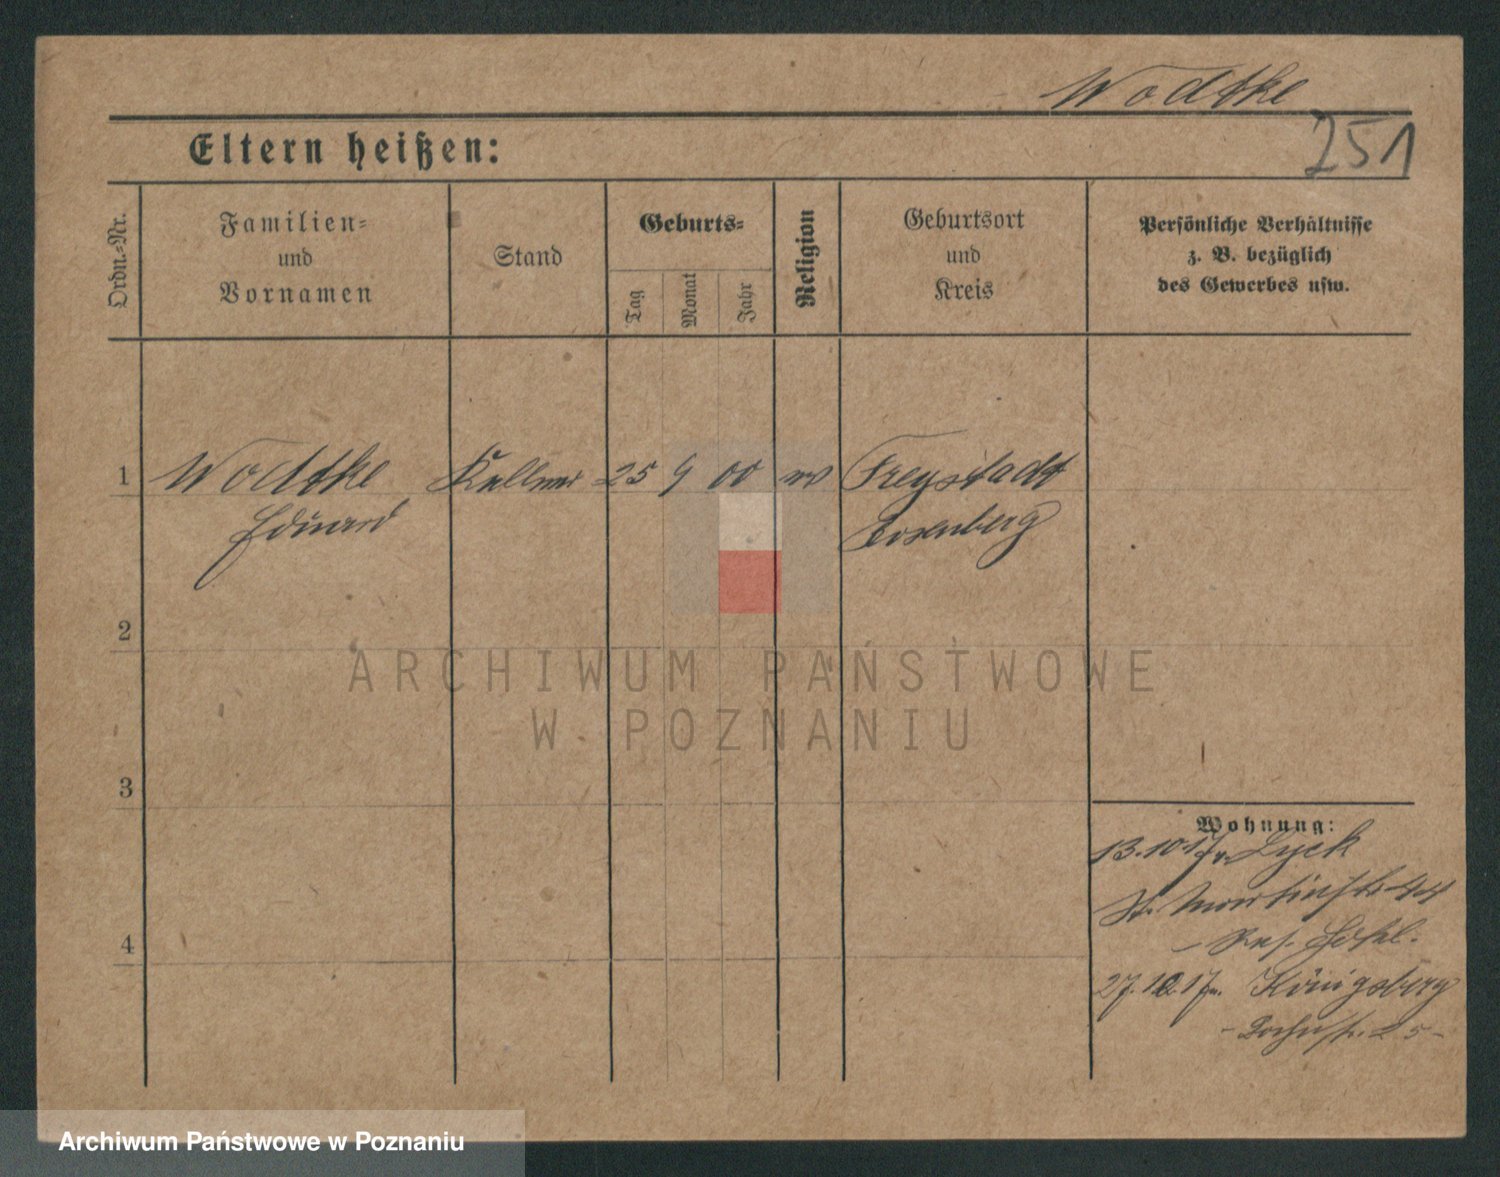 Wodtke
251
Eltern heißen:
Ordn.-Nr.
Familien-
und
Vornamen
Stand
Geburts-
Tag
Monat
Jahr
Religion
Geburtsort
und
Kreis
Persönliche Verhältnisse
z. B. bezüglich
des Gewerbes usw.
1
Wodtke Kellner 25 9 00 ev Freystadt
Eduard Rosenberg
2
ARCHIWUM PAŃSTWOWE
W POZNANIU
3
Wohnung:
13.10.17 v. Lyck
St. Martinstr 44
27.10.17 n. Königsberg
4
Archiwum Państwowe w Poznaniu